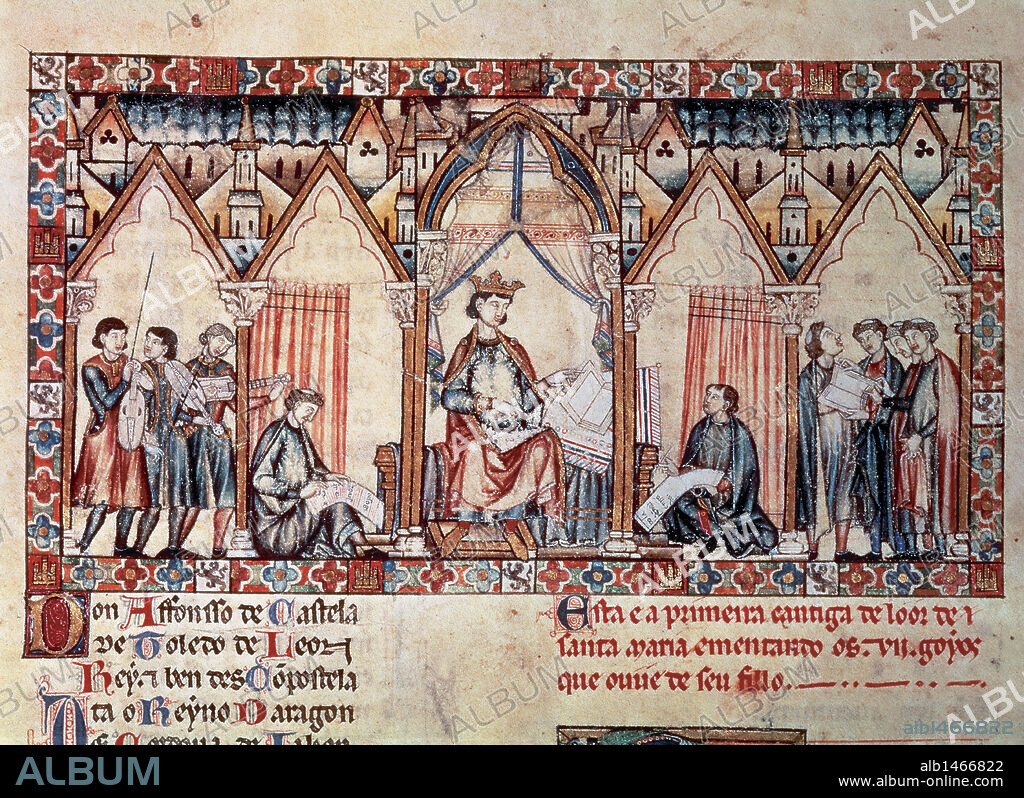 Don Affonsso de Castela
de Toledo de Leon
Rey ⁊ ben des Cōpostela
Ata o Reyno Daragon
Esta e a primeira cantiga de loor de
santa maria ementando os .vii. goyos
que ouue de seu fillo.
ALBUM
alb1466822
alb1466822
www.album-online.com